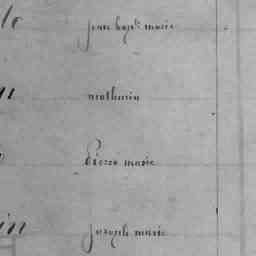 jean bap.te marie
mathurin
pierre marie
joseph marie